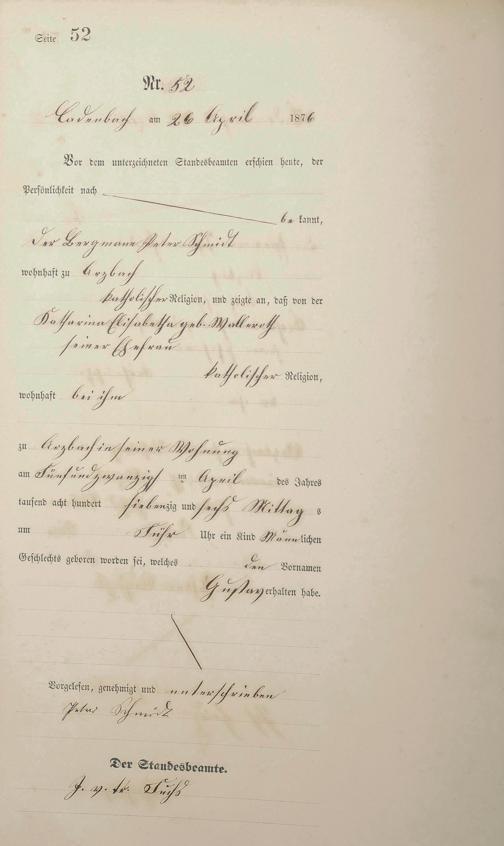 Seite 52
Nr. 52
Cadenbach am 26 April 1876
Vor dem unterzeichneten Standesbeamten erschien heute, der
Persönlichkeit nach
be kannt,
der Bergmann Peter Schmidt
wohnhaft zu Arzbach
katholischer Religion, und zeigte an, daß von der
Katharina Elisabetha geb. Walleroth
seiner Ehefrau
katholischer Religion,
wohnhaft bei ihm
zu Arzbach in seiner Wohnung
am Fünfundzwanzigst en April des Jahres
tausend acht hundert siebenzig und sechs Mittag s
um Uhr ein Kind Männlichen
Geschlechts geboren worden sei, welches den Vornamen
Gustav erhalten habe.
Vorgelesen, genehmigt und unterschrieben
Peter Schmidt
Der Standesbeamte.
Fuchs